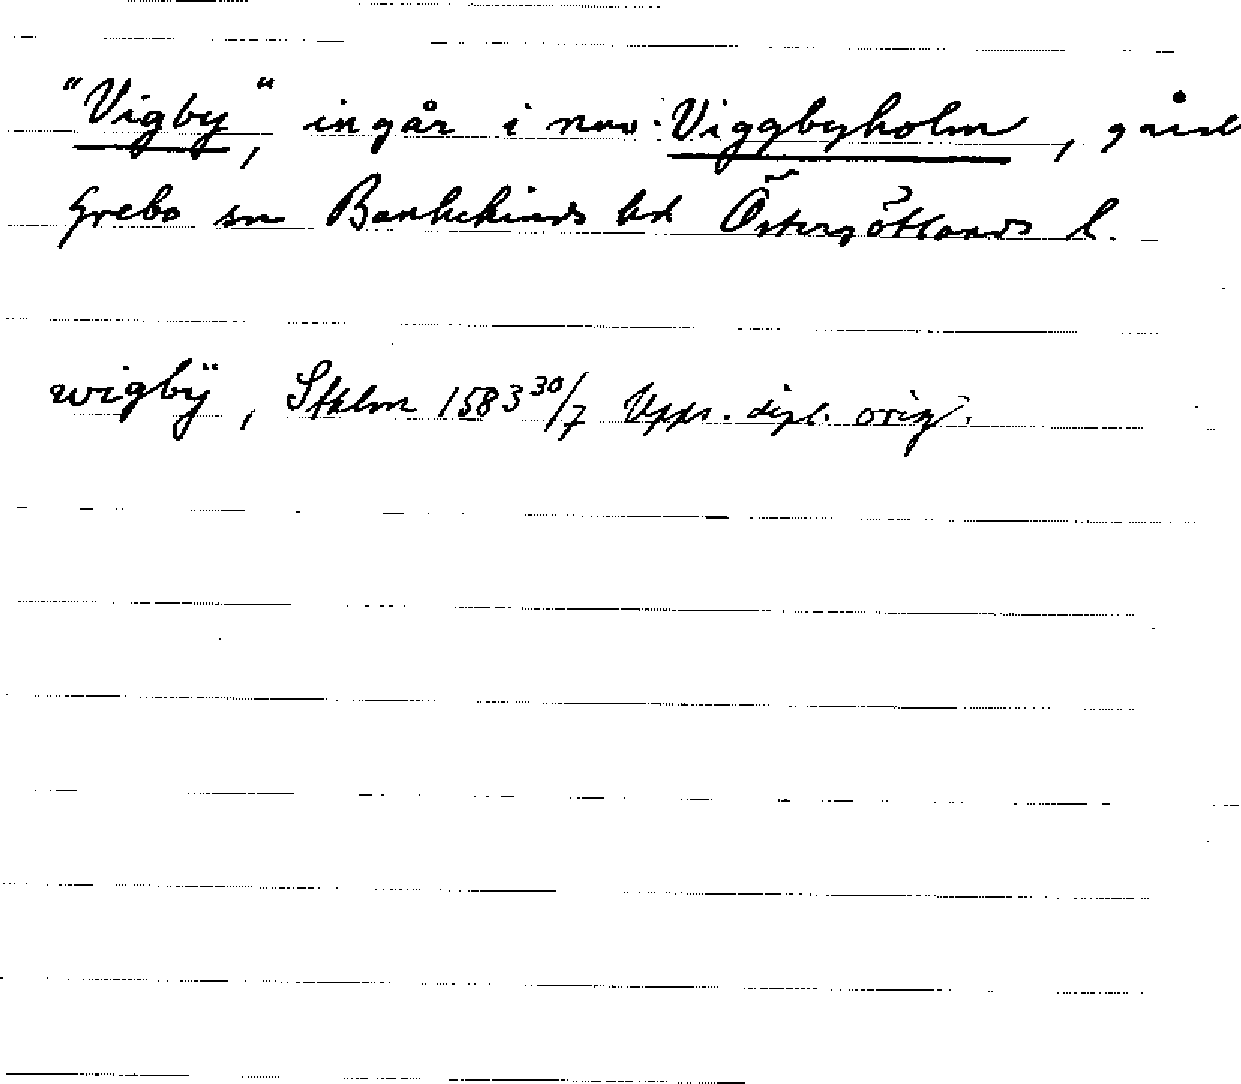 "Vigby", ingår i nuv. Viggbyholm, gård
Grebo sn Bankekinds hd Östergötlands l.
wigbÿ, Sthlm 1583 30/7 Upps. dipl. orig.